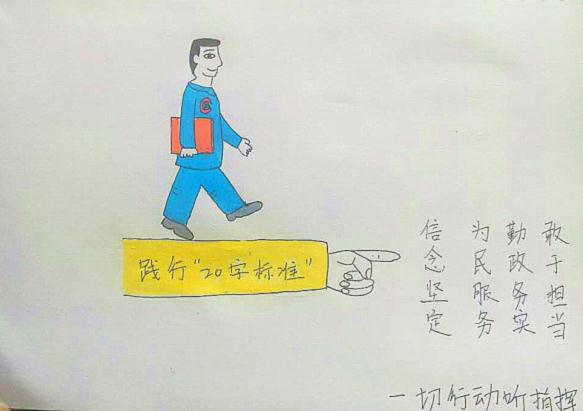 践行“20字标准”
信念坚定
为民服务
勤政务实
敢于担当
一切行动听指挥